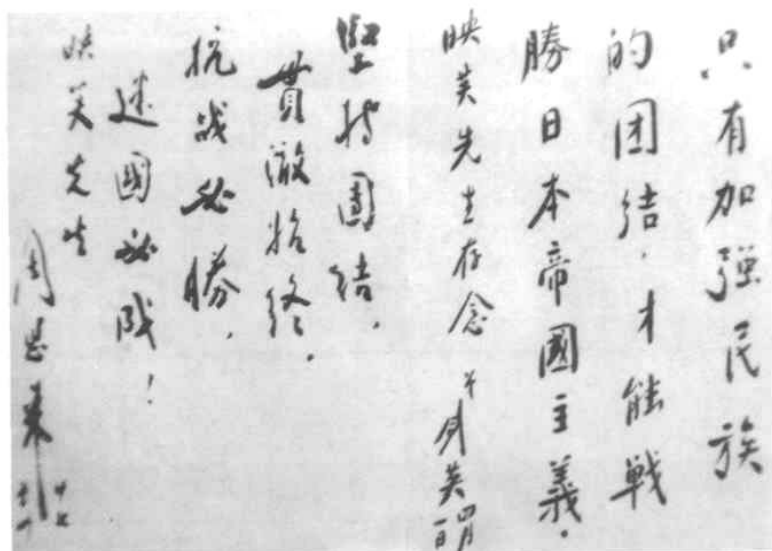 只有加强民族
的团结，才能戰
勝日本帝國主義。
映芙先生存念 叶剑英
堅持團结，
貫澈始终，
抗战必勝，
建國必成！
映芙先生
周恩来